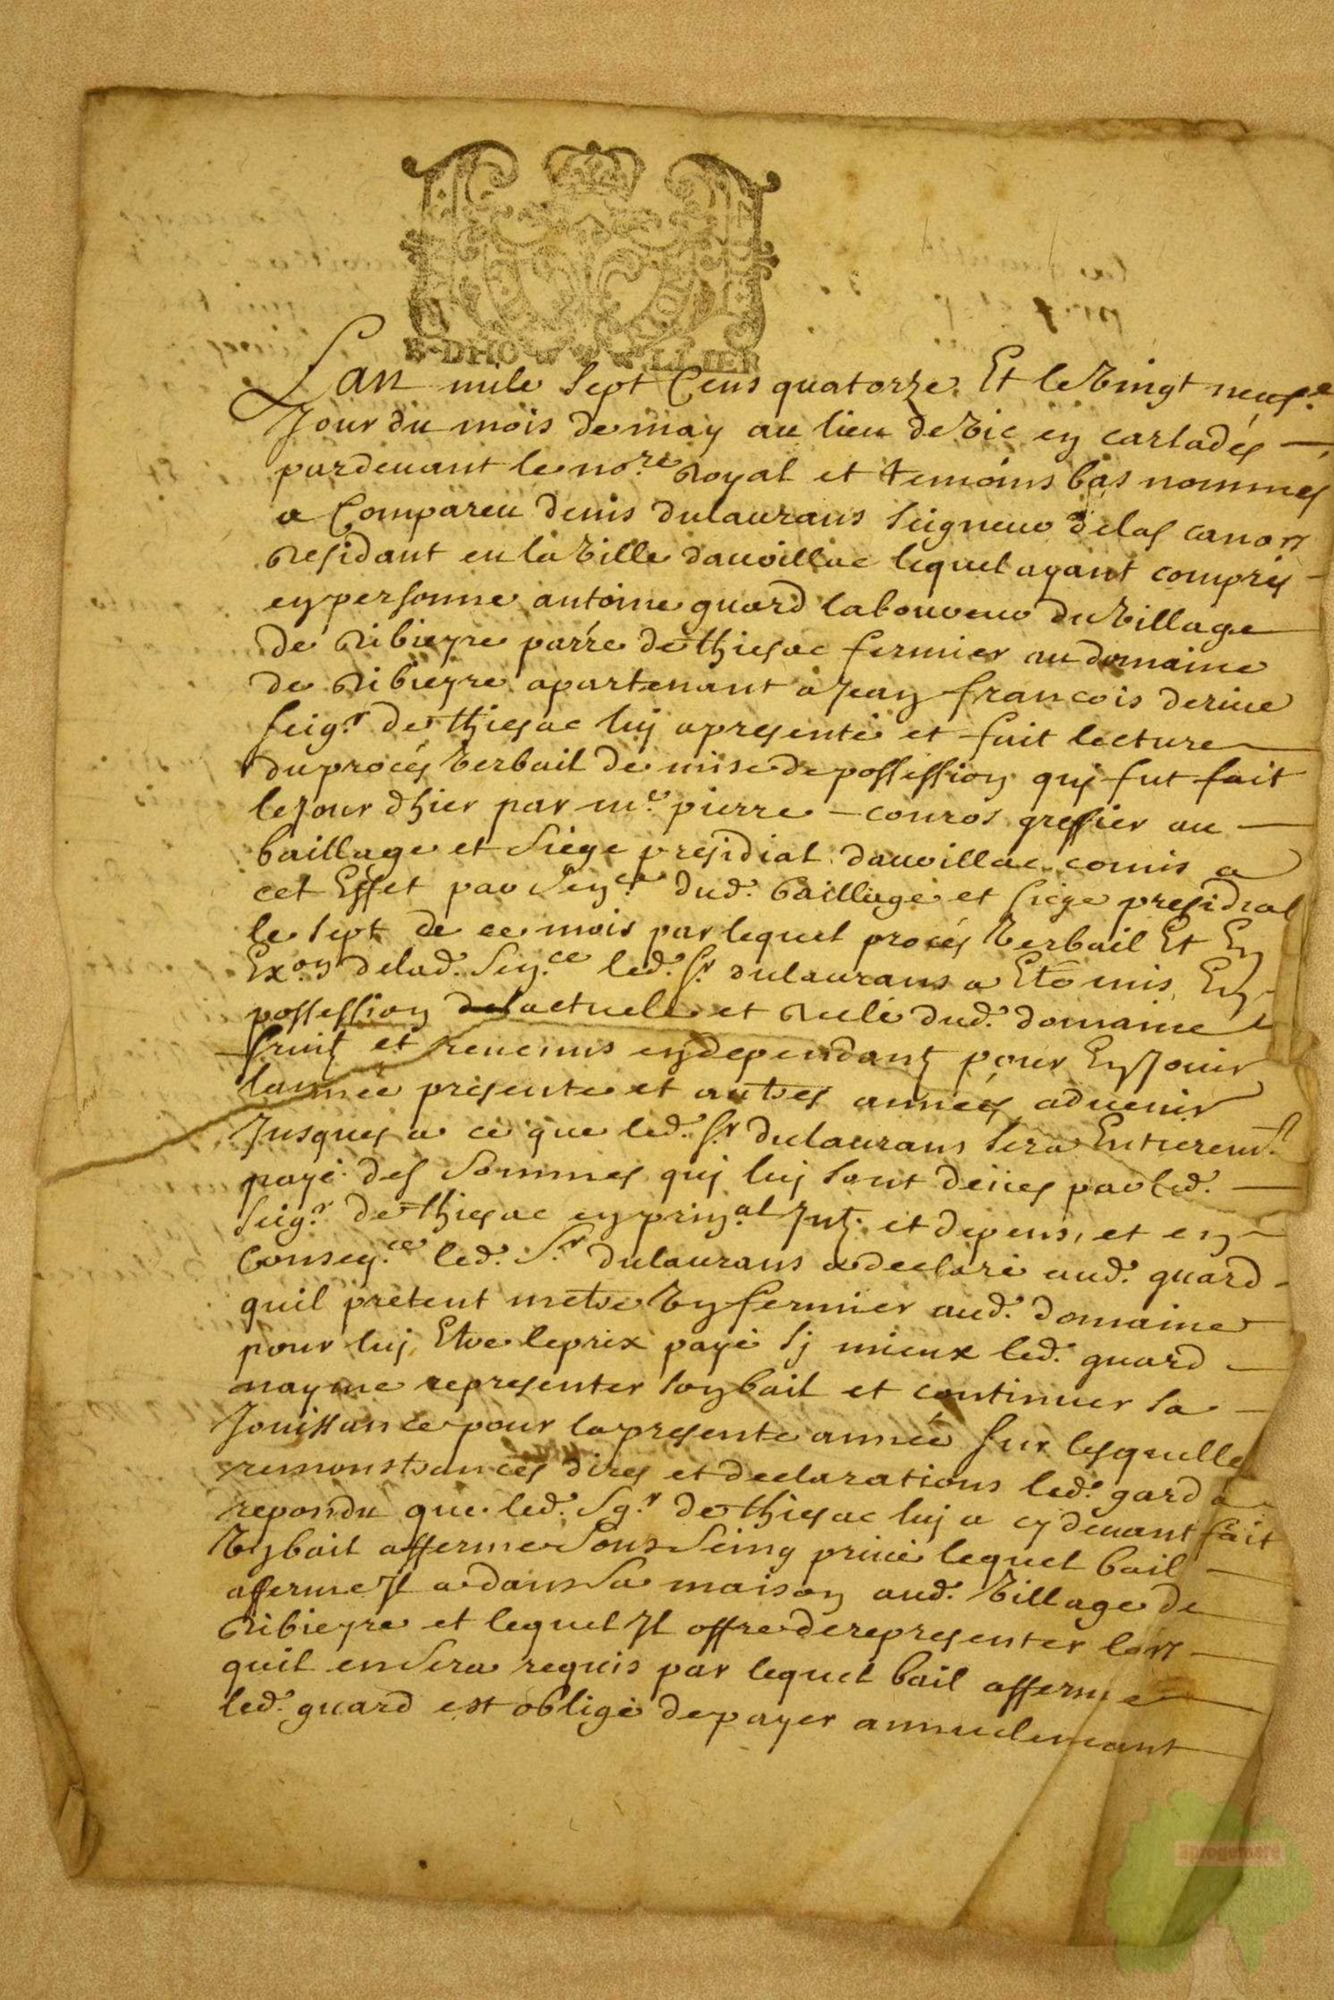 Lan mile sept Cens quatorze Et le vingt neufe
Jour du mois de may au lieu de vic en carladés
pardevant le nore Royal et temoins bas nommes
a Compareu denis dulaurans seigneur de las canon
Residant en la ville daurillac lequel ayant compris
en personne antoine guard laboureur du village
de Ribieyre parre de thiesac fermier au domaine
de Ribieyre apartenant a Jean francois derive
seigr de thiesac luy a presenté et fait lecture
du procés verbail de mise de possession quy fut fait
le Jour dhier par me pierre couros greffier au
baillage et siége presidial daurillac comis a
cet Effet par Sence dud. baillage et siege presidial
le sept de ce mois par lequel procés verbail Et En
Exon delad. Sence led. sr dulaurans a Eté mis En
possession de lactuele et Réele dud. domaine
fruitz et revenus en dependantz pour En Jouir
lannée presente et autres années advenir
Jusques a ce que led. sr dulaurans sera Entieremt
payé des sommes quy luy sont deües par led.
seigr de thiesac en prinal Intz et depens, et en
Conseqce led. Sr dulaurans a declaré aud. guard
quil pretent metre un fermier aud. domaine
pour luy Etre le prix payé sy mieux led. guard
nayme representer son bail et continuer sa
Jouissance pour la presente année sur lesquelle
remonstrances dires et declarations led. gard a
repondu que led. Sgr de thiesac luy a cy devant fait
un bail afferme sous seing privé lequel bail
afferme Il a dans sa maison aud. village de
Ribieyre et lequel Il offre de representer lors
quil en sera requis par lequel bail afferme
led. guard est obligé de payer annuelemant
aprogemere